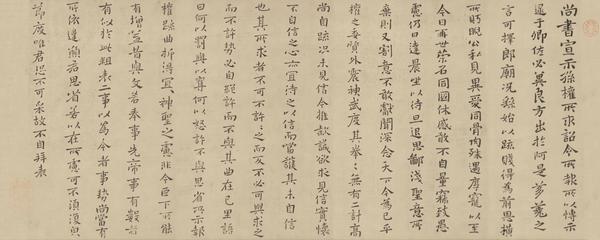 尚書宣示孫權所求詔令所報所以博示
逮于卿佐必冀良方出於阿是芻蕘之
言可擇郎廟況繇始以疏賤得為前恩橫
所盻睨公私見異愛同骨肉殊遇厚寵以至
今日再世榮名同國休慼敢不自量竊致愚
慮仍日達晨坐以待旦退思鄙淺聖意所
棄則又割意不敢獻聞深念天下今為已平
權之委質外震神武度其拳拳無有二計高
尚自疏況未見信今推款誠欲求見信實懷
不自信之心亦宜待之以信而當護其未自信
也其所求者不可不許許之而反不必可與求之
而不許勢必自絕許而不與其曲在己里語
曰何以罰與以奪何以怒許不與思省所示報
權疏曲折得宜宜神聖之慮非今臣下所能
有增益昔與文若奉事先帝事有數者
有似於此粗表二事以為今者事勢尚當有
所依違願君思省若以在所慮可不須復皃
節度唯君恐不可采故不自拜表